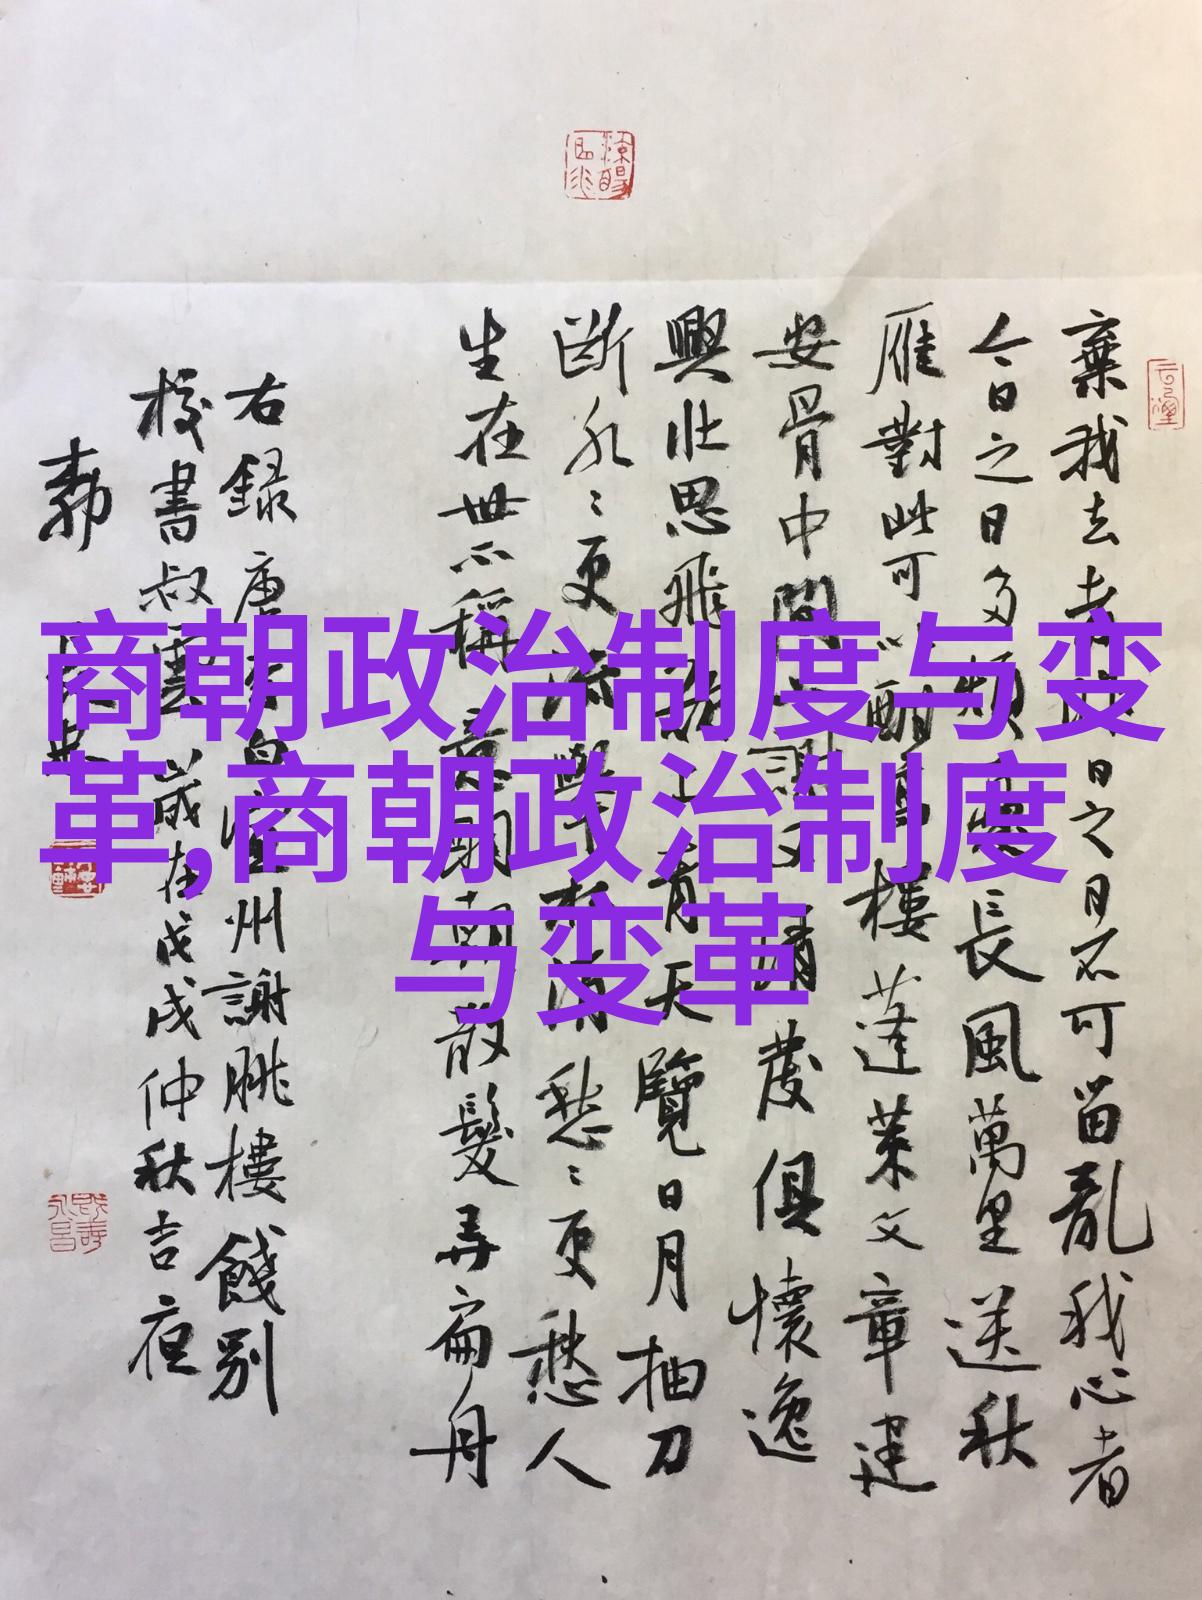 商朝政治制度与变
革,商朝政治制度
与变革
棄我去者昨日之日不可留亂我心者
今日之日多煩憂長風萬里送秋
雁對此可以酣高樓蓬萊文章建
安骨中間小謝又清發俱懷逸
興壯思飛揚上青天覽日月抽刀
斷水〻更流舉杯消愁〻更愁人
生在世不稱意明朝散髮弄扁舟
右錄唐李白宣州謝朓樓餞別
校書叔雲 歲在戊戌仲秋吉夜